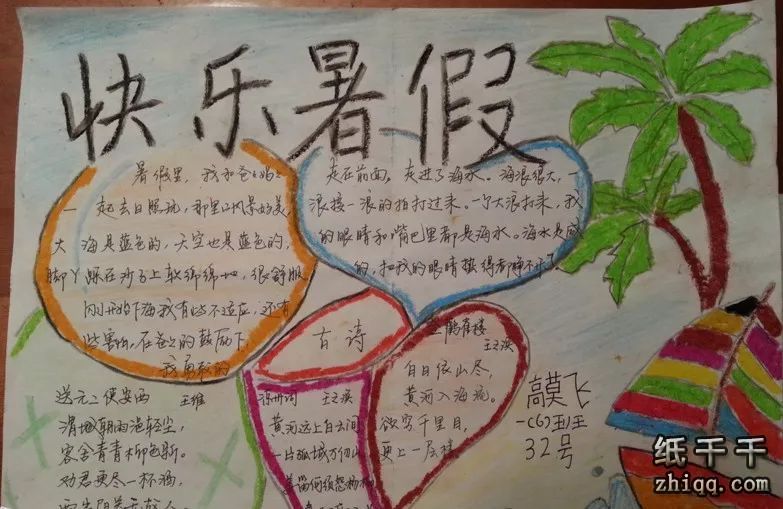 快乐暑假
暑假里，我和爸爸妈妈
一起去日照玩，那里的风景好美，
大海是蓝色的，天空也是蓝色的，
脚丫踩在沙子上软绵绵地，很舒服
刚开始下海我有些不适应，还有
些害怕，在爸爸的鼓励下，
我勇敢的
走在前面，走进了海水。海浪很大，一
浪接一浪的拍打过来。一个大浪打来，我
的眼睛和嘴巴里都是海水。海水是咸
的，把我的眼睛
古诗
登鹳雀楼
王之涣
白日依山尽，
黄河入海流。
欲穷千里目，
更上一层楼
送元二使安西
王维
渭城朝雨浥轻尘，
客舍青青柳色新。
劝君更尽一杯酒，
凉州词
王之涣
黄河远上白云间
一片孤城万仞山
羌笛何须怨杨柳
高莫飞
一(6)班
32号
纸千千
zhiqq.com